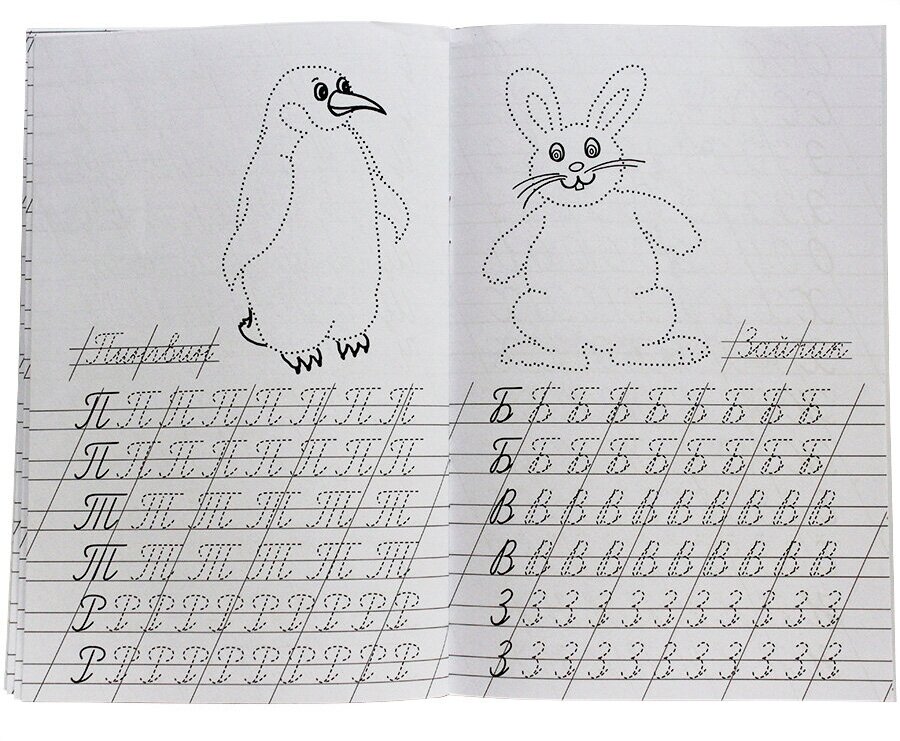 Пингвин
П П П П П П П П
П П П П П П П П
Т Т Т Т Т Т
Т Т Т Т Т Т
Р Р Р Р Р Р Р Р Р Р
Р Р Р Р Р Р Р Р Р Р
Зайчик
Б Б Б Б Б Б Б Б Б
Б Б Б Б Б Б Б Б Б
В В В В В В В В В В
В В В В В В В В В В
З З З З З З З З З З З
З З З З З З З З З З З